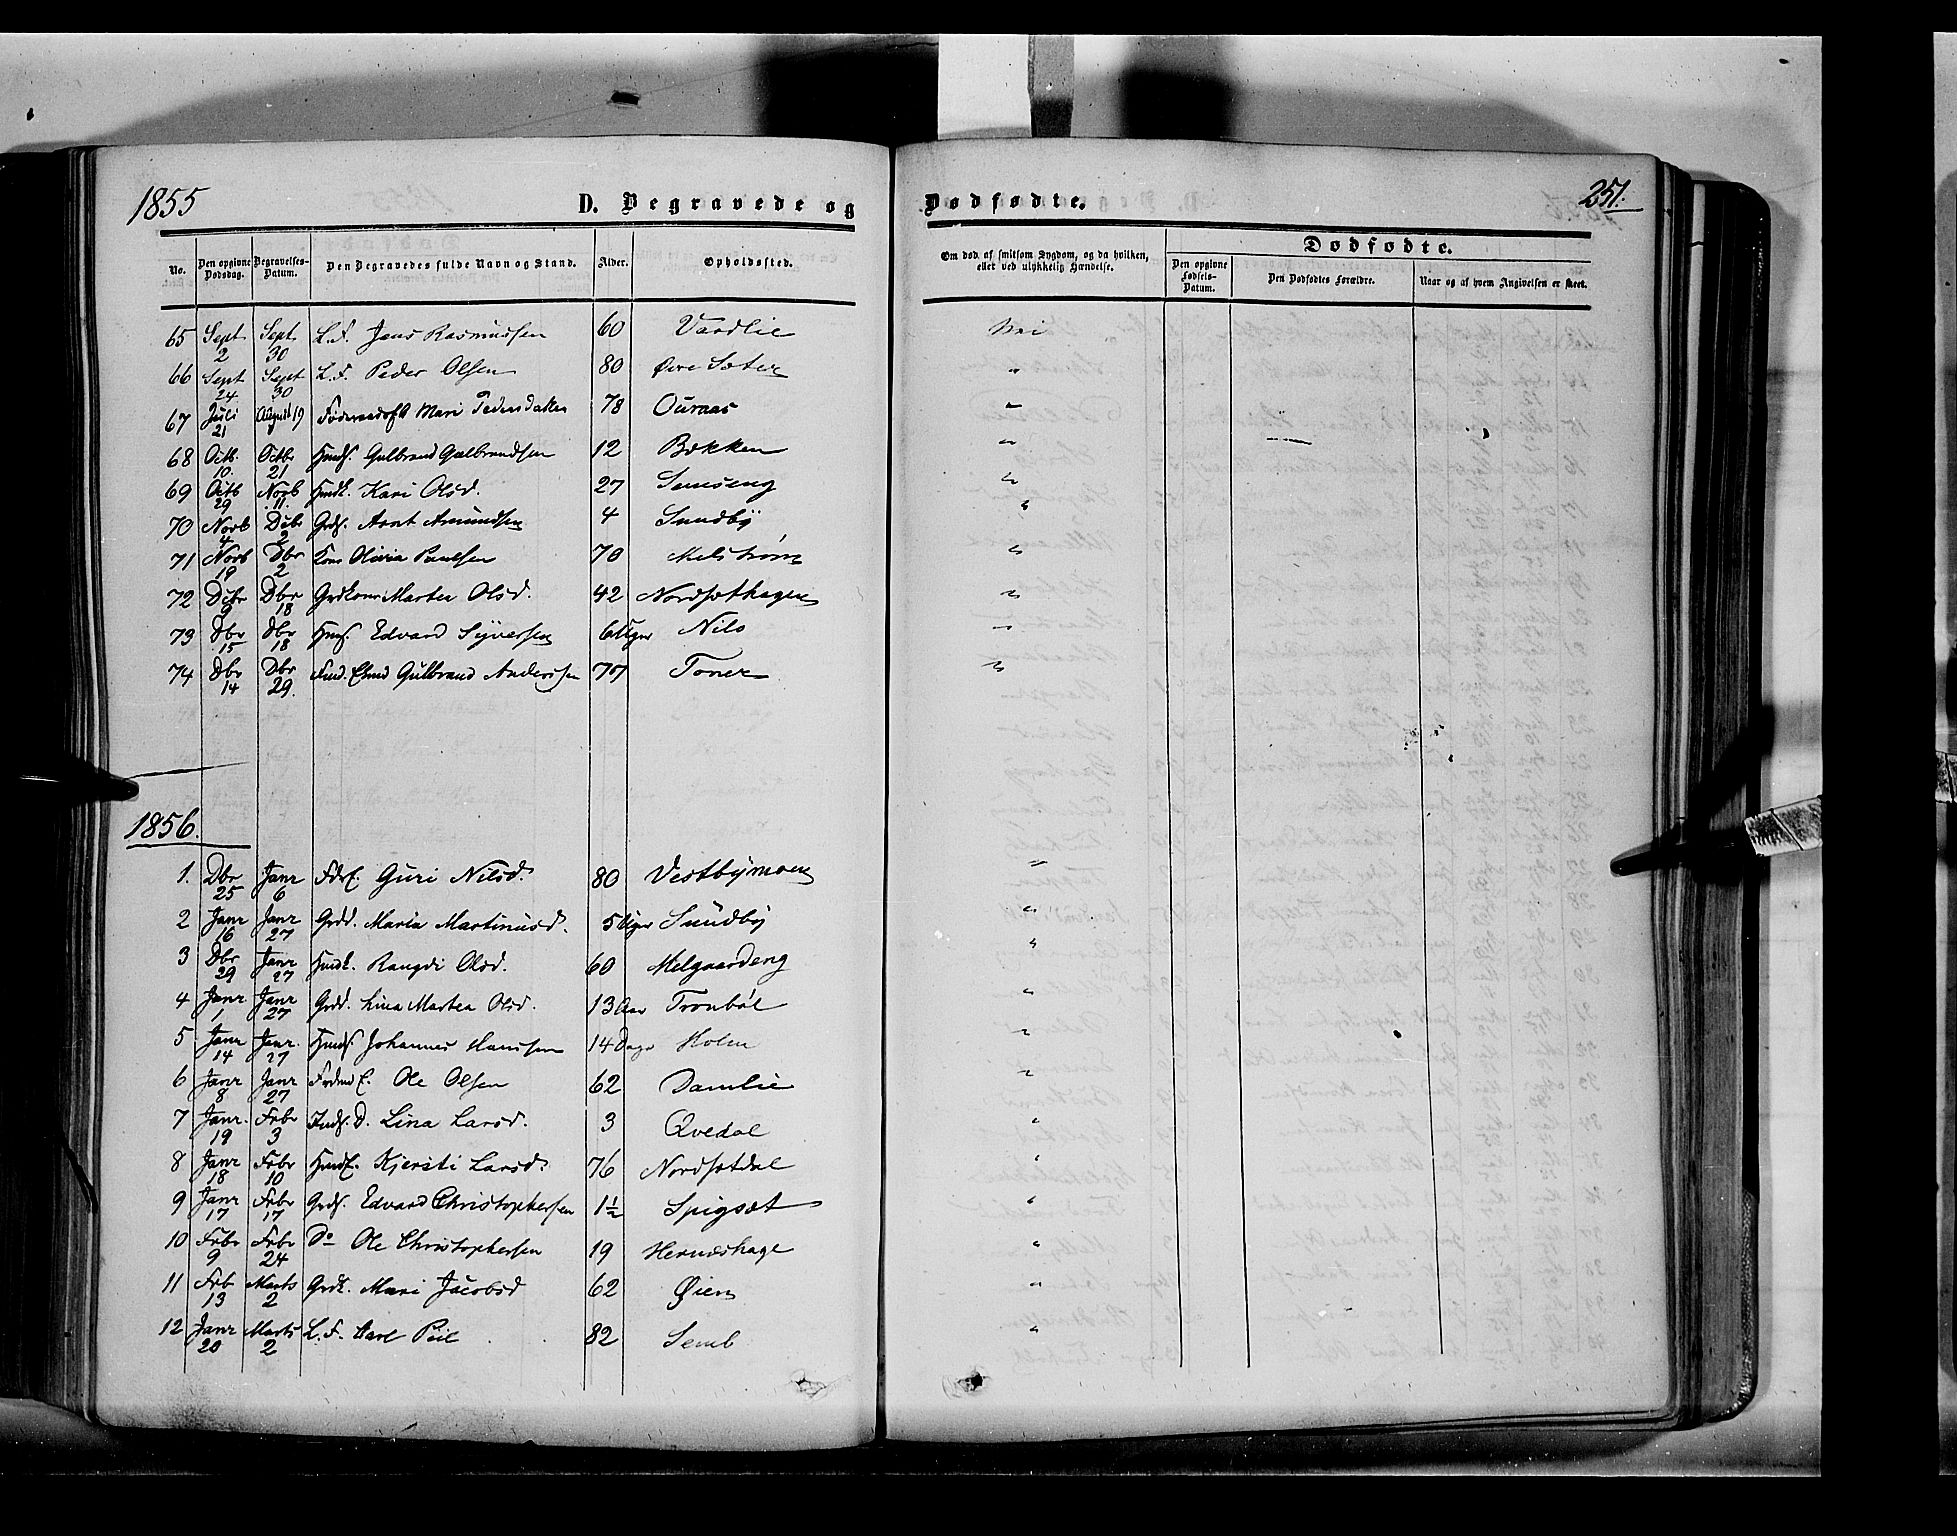 1855
D. Begravede og
Dødfødte.
251.
No. Den opgivne Dødsdag. Begravelses-Datum. Den Begravedes fulde Navn og Stand. Alder. Opholdssted.
Om død af smitsom Sygdom, og da hvilken, eller ved ulykkelig Hændelse.
Dødfødte.
Den opgivne Fødsels-Datum. Den Dødfødtes Forældre. Naar og af hvem Angivelsen er skeet.
65 Sept 2 Sept 30 L. F. Jens Rasmussen 60 Vardlie Nei
66 Sept 24 Sept 30 L. F. Peder Olsen 80 Øvre Sæter "
67 Juli 21 August 19 Mari Pedersdatter 78 Ouraas "
68 Octb. 10. Octbr 21 Hmds. Gulbrand Gulbrandsen 12 Bækken "
69 Octb 29 Novb 11. Hmdk. Kari Olsd. 27 Samseng "
70 Novb 4 Dcbr 2 Grds. Arnt Amundsen 4 Sundby "
71 Novb 19 Dbr 2 Kone Olivia Paulsen 70 Melstrøm "
72 Dcbr 9 Dbr 18 Grdkone Marten Olsd. 42 Nordsæthagen "
73 Dbr 15 Dbr 18 Hms. Edvard Syversen 6 Uger Nilo "
74 Dbr 14 Dbr 29. Gulbrand Anderssen 77 Toner "
1856.
1. Dbr 25 Janr 6 Guri Nilsd. 80 Vestbymoen "
2 Janr 16 Janr 27 Grdd. Maria Martinusd. 5 Uger Sundby "
3 Dbr 29 Janr 27 Hmdk. Rangdi Olsd. 60 Melgaardeng "
4 Janr 1 Janr 27 Grdd. Lina Martea Olsd. 13 Aar Tronbøl "
5 Janr 14 Janr. 27 Hmds Johannes Hanssen 14 Dage Holm "
6 Janr 8 Janr 27 Ole Olsen 62 Damlie "
7 Janr. 19 Febr 3 Inds. D. Lina Larsd. 3 Qvedal "
8 Janr 18 Febr 10 Kjersti Larsd. 76 Nordsætdal "
9 Janr 17 Febr 17 Grds. Edvard Christophersen 1½ Spigsæt "
10 Febr 9 Febr 24 Do Ole Christophersen 19 Hernæshage "
11 Feb 13 Marts 2 Grdk. Mari Jacobsd 62 Øien "
12 Janr 20 Marts 2 L. F. 82 Semb "